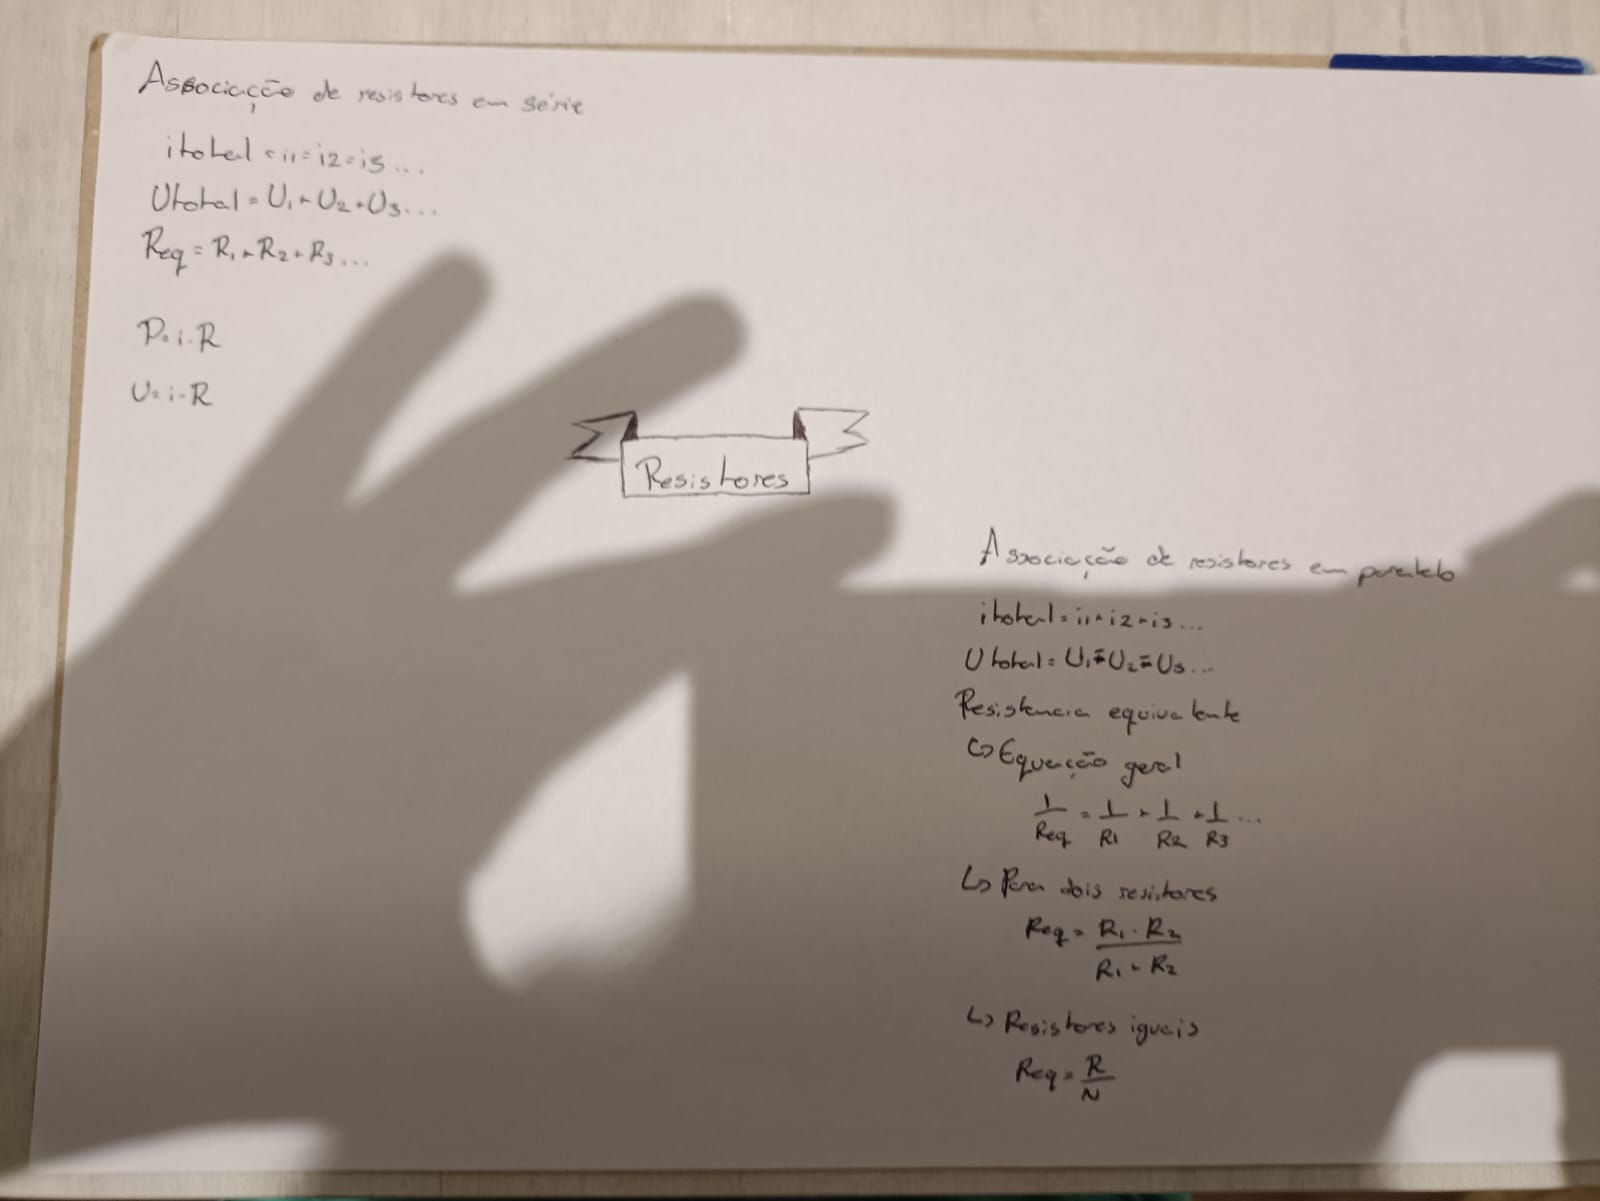 Associação de resistores em série
itotal = i1 = i2 = i3...
Utotal = U1 + U2 + U3...
Req = R1 + R2 + R3...
P = i · R
U = i · R
Resistores
Associação de resistores em paralelo
itotal = i1 + i2 + i3...
Utotal = U1 = U2 = U3...
Resistencia equivalente
↳ Equação geral
1/Req = 1/R1 + 1/R2 + 1/R3 ...
↳ Para dois resistores
Req = R1 · R2 / R1 + R2
↳ Resistores iguais
Req = R/N